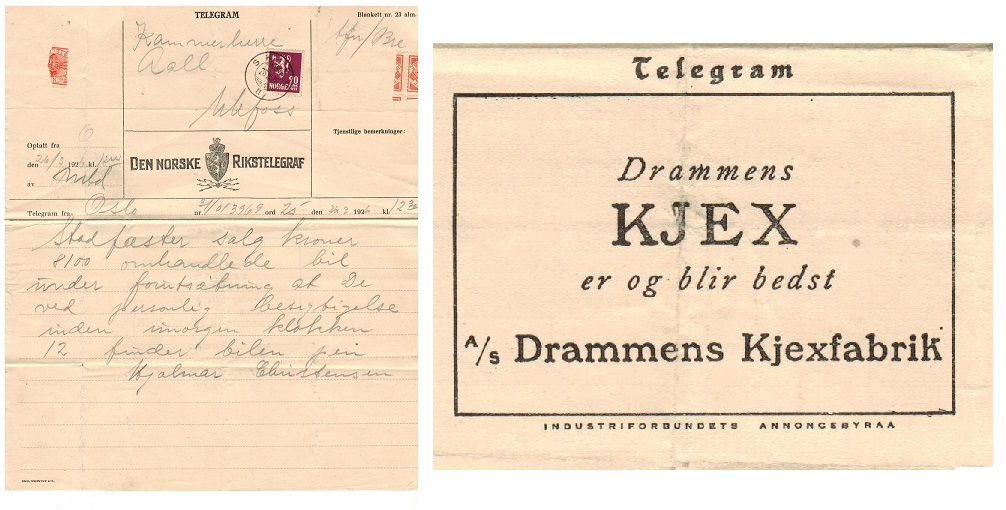 TELEGRAM
Blankett nr. 23 alm.
Kammerherre
Aall
Ulefoss
20
NORGE
Tjenstlige bemerkninger:
Optatt fra
den 26/3 192 kl.
av
DEN NORSKE RIKSTELEGRAF
Telegram fra Oslo nr. 3969 ord 25 den 26 3 1926 kl. 12
Stadfæster salg kroner
8100 omhandlede bil
under forutsætning at De
ved personlig besigtigelse
inden imorgen klokken
12 finder bilen pen
Hjalmar Christensen
Telegram
Drammens
KJEX
er og blir bedst
A/s Drammens Kjexfabrik
INDUSTRIFORBUNDETS ANNONCEBYRAA